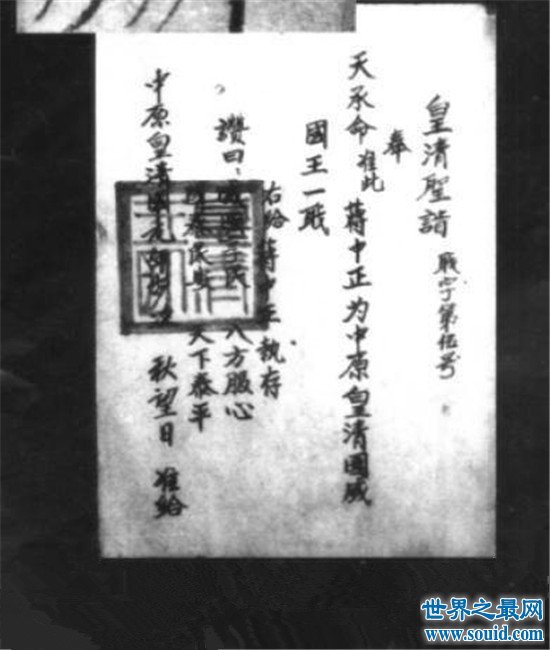 皇清聖誥 字第伍号
奉
天承命准此 蒋中正为中原皇清國威
國王一
右给蒋中正執存
讚曰: 八方服心
民 天下泰平
中原皇清 秋望日 准给
世界之最网
www.souid.com